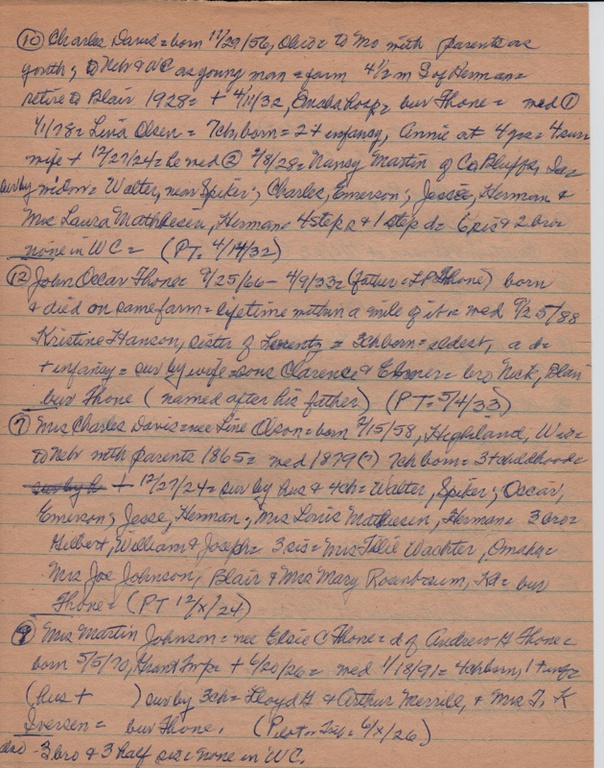 (10) Charles Davis = born 12/29/56, Ohio = to Mo with parents as
youth; to Nebr & WC as young man = farm 4 1/2 m S of Herman =
retire to Blair 1928 = + 4/11/32, Omaha hosp = bur Fhone = med (1)
1/1/78 = Lina Olsen = 7ch, born = 2 + infancy, Annie at 4 yrs = 4 surv
wife + 12/27/24 = he med (2) 2/8/28 = Nancy Martin of Co Bluffs, Ia =
sur by widow = Walter, near Spiker; Charles, Emerson; Jessie, Herman &
Mrs Laura Mathiesen, Herman = 4 step s & 1 step d = 6 sis & 2 bro =
none in WC = (PT = 4/14/32)
(12) John Oscar Fhone = 9/25/66 - 4/9/33 = (father = LP Fhone) born
& died on same farm = lifetime within a mile of it = med 9/25/88
Kristine Hanson, sister of = 3ch born = eldest, a d =
+ infancy = sur by wife = sons Clarence & Elmer = bro Nick, Blair
bur Fhone (named after his father) (PT = 5/4/33)
(7) Mrs Charles Davis = nee Line Olson = born 2/15/58, Highland, Wis =
to Nebr with parents 1865 = med 1879 (?) 7ch born = 3 + childhood =
sur by h + 12/27/24 = sur by hus & 4ch = Walter, Spiker; Oscar,
Emerson; Jesse, Herman; Mrs Louis Mathiesen, Herman = 3 bro =
Gilbert, William & Joseph = 3 sis = Mrs Tillie Wachter, Omaha =
Mrs Joe Johnson, Blair & Mrs Mary Rosenbaum, = bur
Fhone = (PT 12/x/24)
(9) Mrs Martin Johnson = nee Elsie C Fhone = d of Andrew G Fhone =
born 5/5/70, Grant Twp + 6/20/26 = med 1/18/91 = 4ch born, 1 + infcy
(hus + ) sur by 3ch = Lloyd G & Arthur Merrill, & Mrs T. K
Iversen = bur Fhone. (Pilot-Trib = 6/x/26)
also - 3 bro & 3 half sis = none in WC.